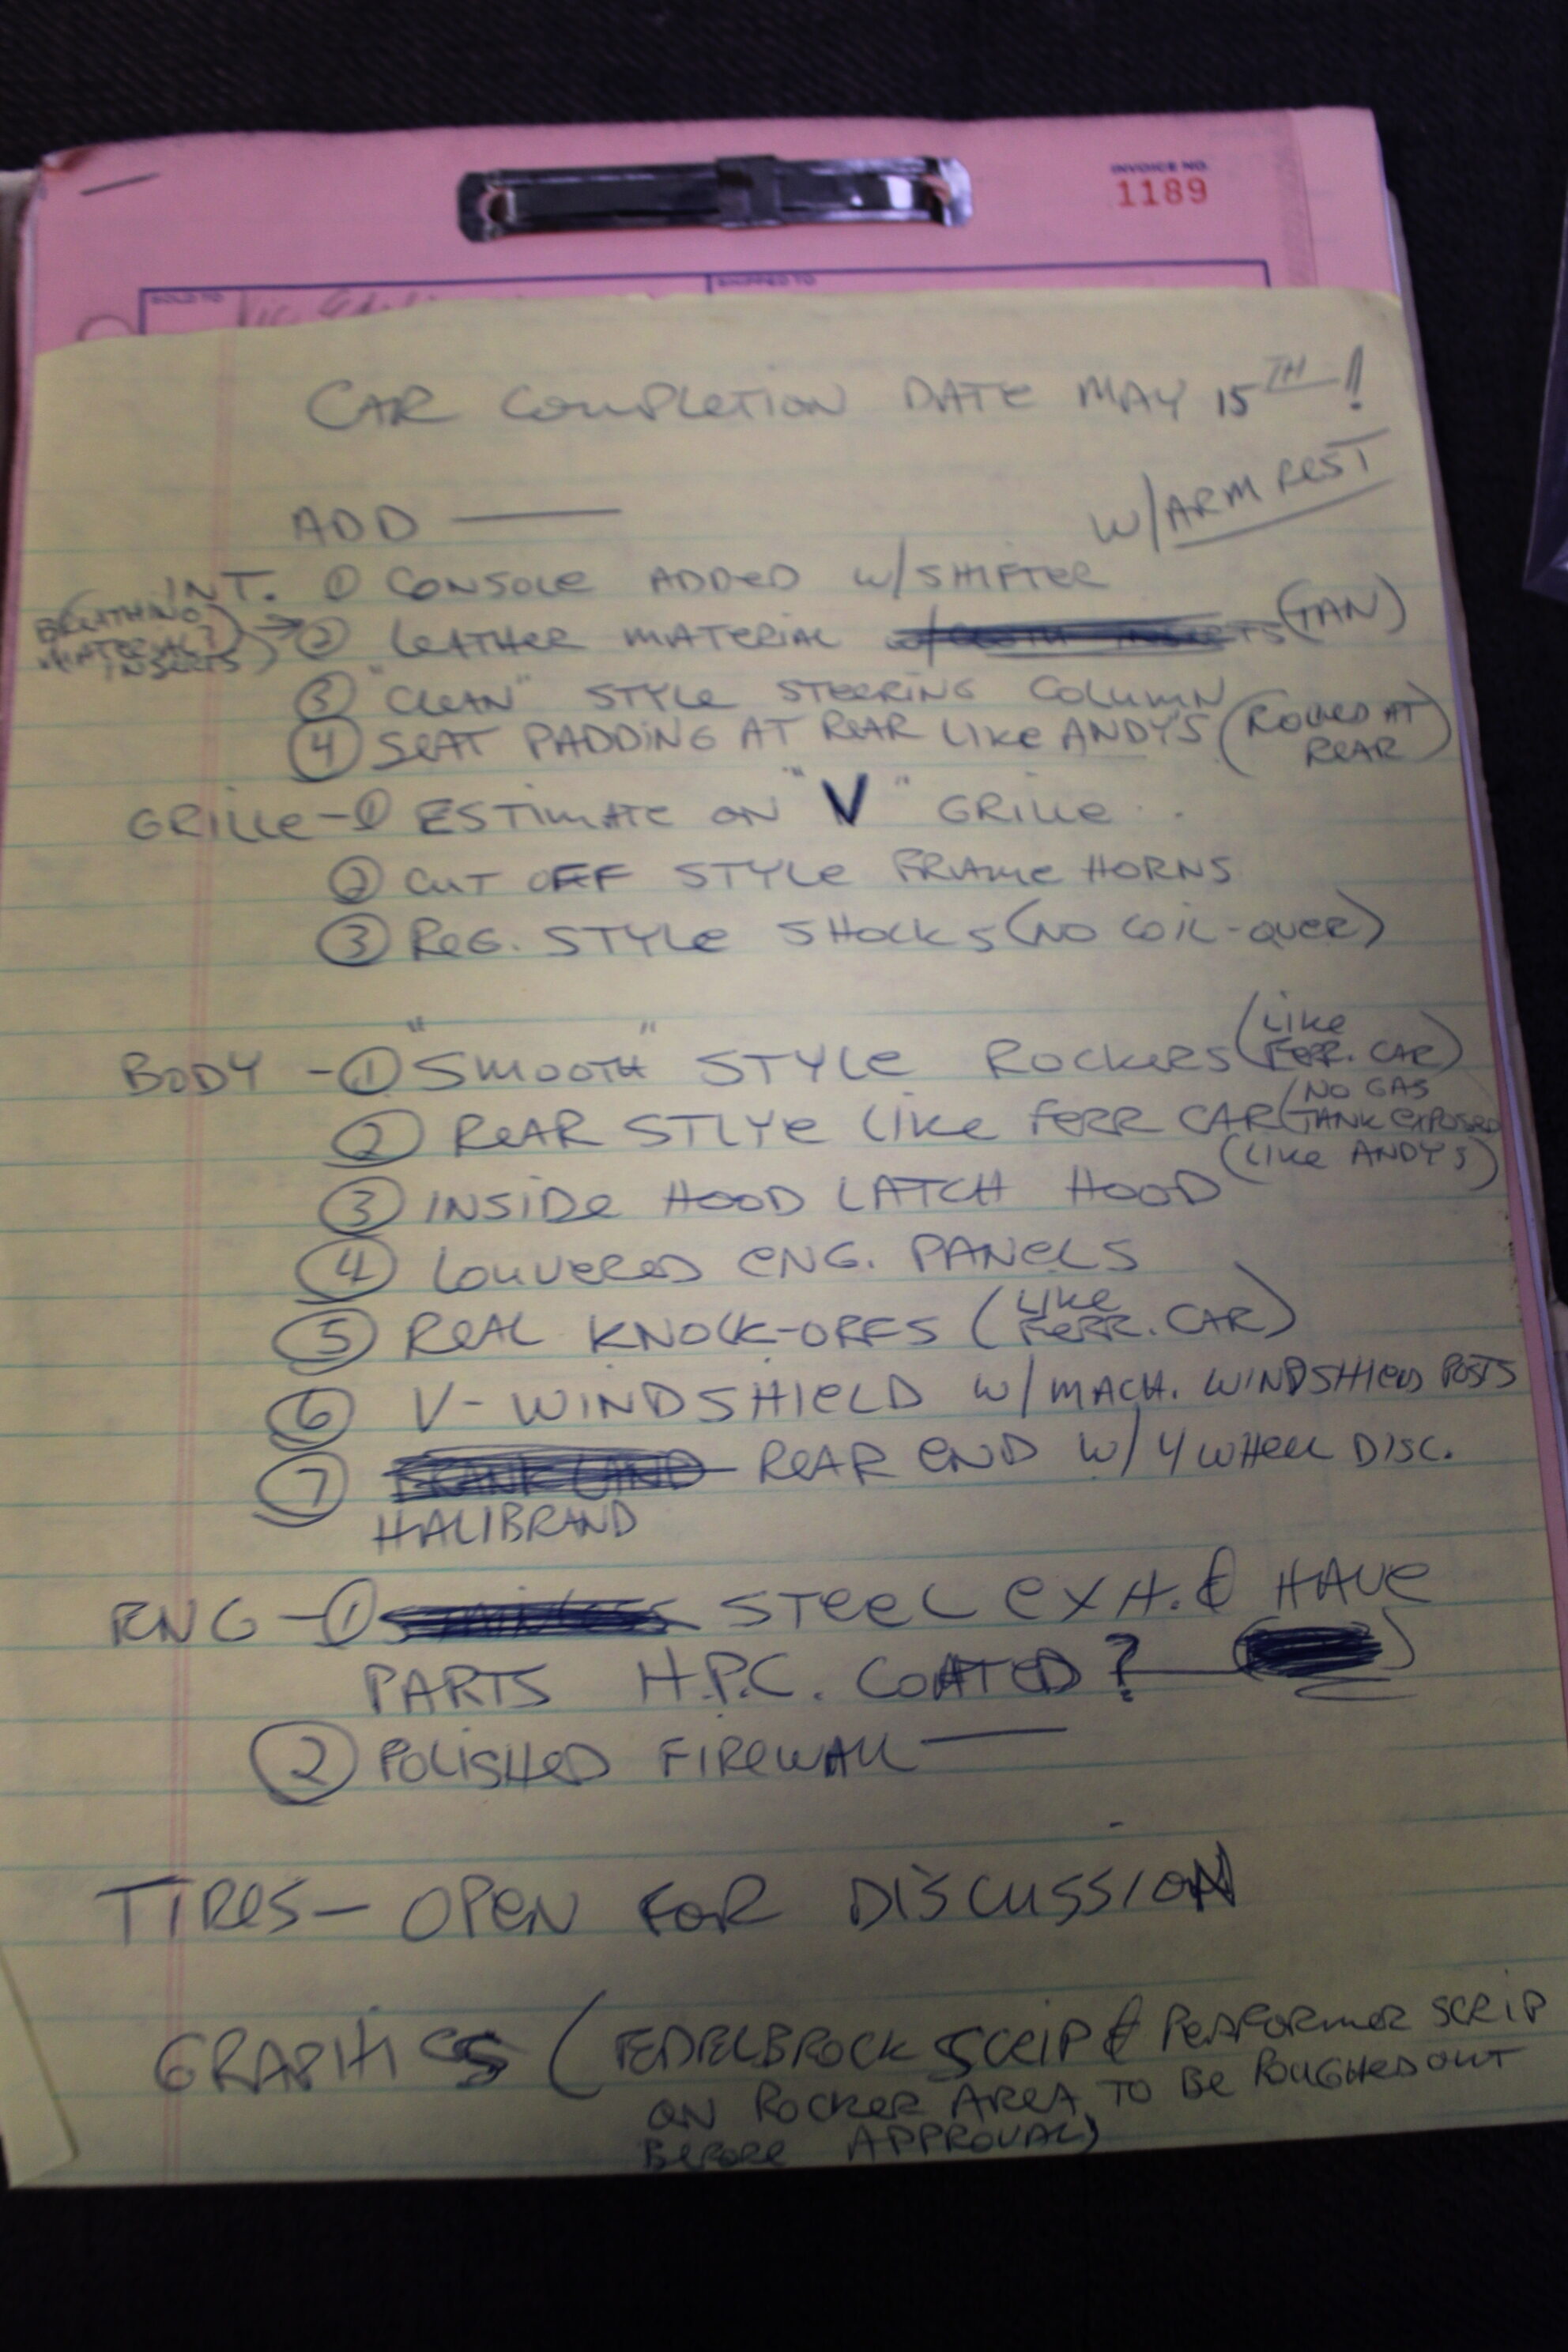 INVOICE NO.
1189
SOLD TO
SHIPPED TO
Vic
CAR COMPLETION DATE MAY 15TH!
W/ARM REST
ADD —
INT. ① CONSOLE ADDED W/SHIFTER
BREATHING MATERIAL? INSERTS → ② LEATHER MATERIAL (TAN)
③ "CLEAN" STYLE STEERING COLUMN
④ SEAT PADDING AT REAR LIKE ANDY'S (ROLLED AT REAR)
GRILLE - ① ESTIMATE ON "V" GRILLE
② CUT OFF STYLE FRAME HORNS
③ REG. STYLE SHOCKS (NO COIL-OVER)
BODY - ① "SMOOTH" STYLE ROCKERS (LIKE FERR. CAR)
② REAR STLYE LIKE FERR CAR (NO GAS TANK EXPOSED
③ INSIDE HOOD LATCH HOOD (LIKE ANDY'S)
④ LOUVERED ENG. PANELS
⑤ REAL KNOCK-OFFS (LIKE FERR. CAR)
⑥ V-WINDSHIELD W/MACH. WINDSHIELD POSTS
⑦ REAR END W/ 4 WHEEL DISC.
HALIBRAND
ENG - ① STAINLESS STEEL EXH. & HAVE
PARTS H.P.C. COATED?
② POLISHED FIREWALL —
TIRES - OPEN FOR DISCUSSION
GRAPHICS (EDELBROCK SCRIP & PERFORMER SCRIP
ON ROCKER AREA TO BE ROUGHED OUT
BEFORE APPROVAL)